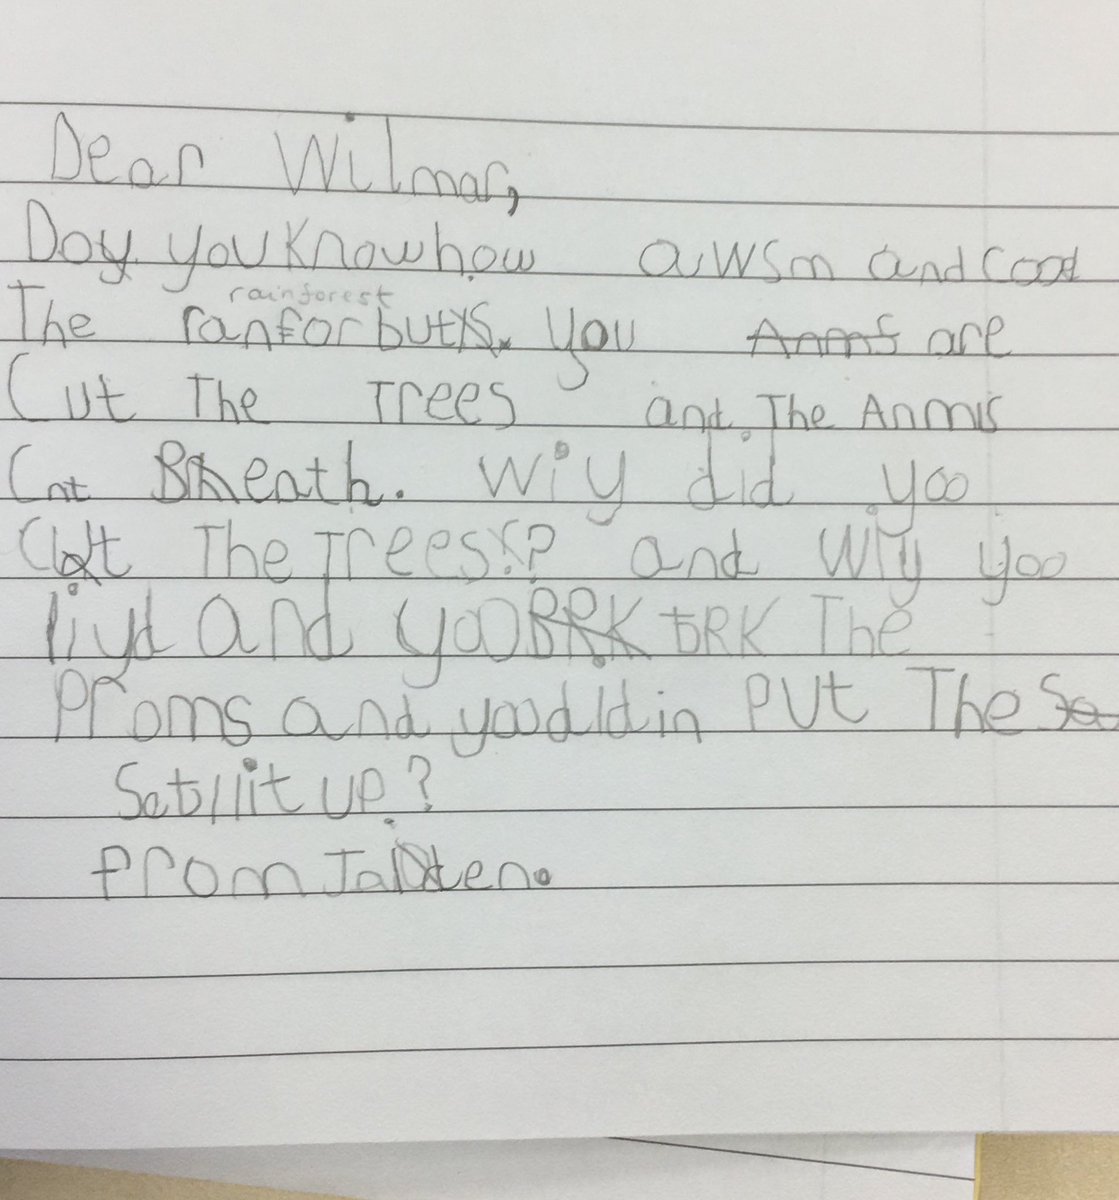 Dear Wilmar,
Doy you know how awsm and cool
rainforest
The ranforbutis. you are
Cut The Trees and The Anmis
Cnt Breath. Wiy did yoo
Cut The Trees? and Wiy yoo
liyd and yoo bRK The
Proms and yoo didin PUt The
Satllit UP?
From Jaiden.